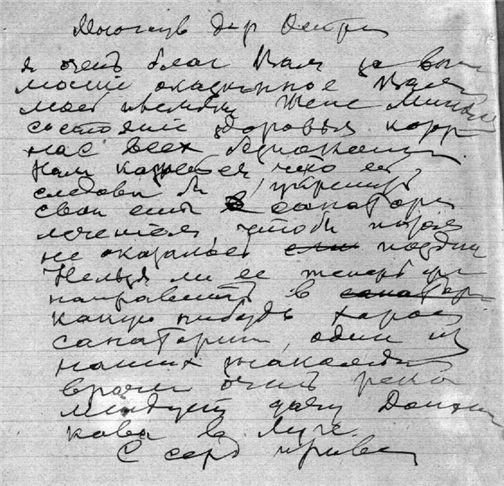 Многоув дор Остри
я очень благ Вам за вни
мание оказанное Вами
моей племян Жене Минь
состояние здоровья котор
нас всех беспокоит.
Нам кажется что ей
следова бы укрепить
свои силы санатор
лечением чтобы потом
не оказалось поздн
Нельзя ли ее теперь же
направить в
какую нибудь хорош
санаторию, один из
наших знакомых
врачей очень реко
мендует дачу Долж
кова в Луге.
С серд приве